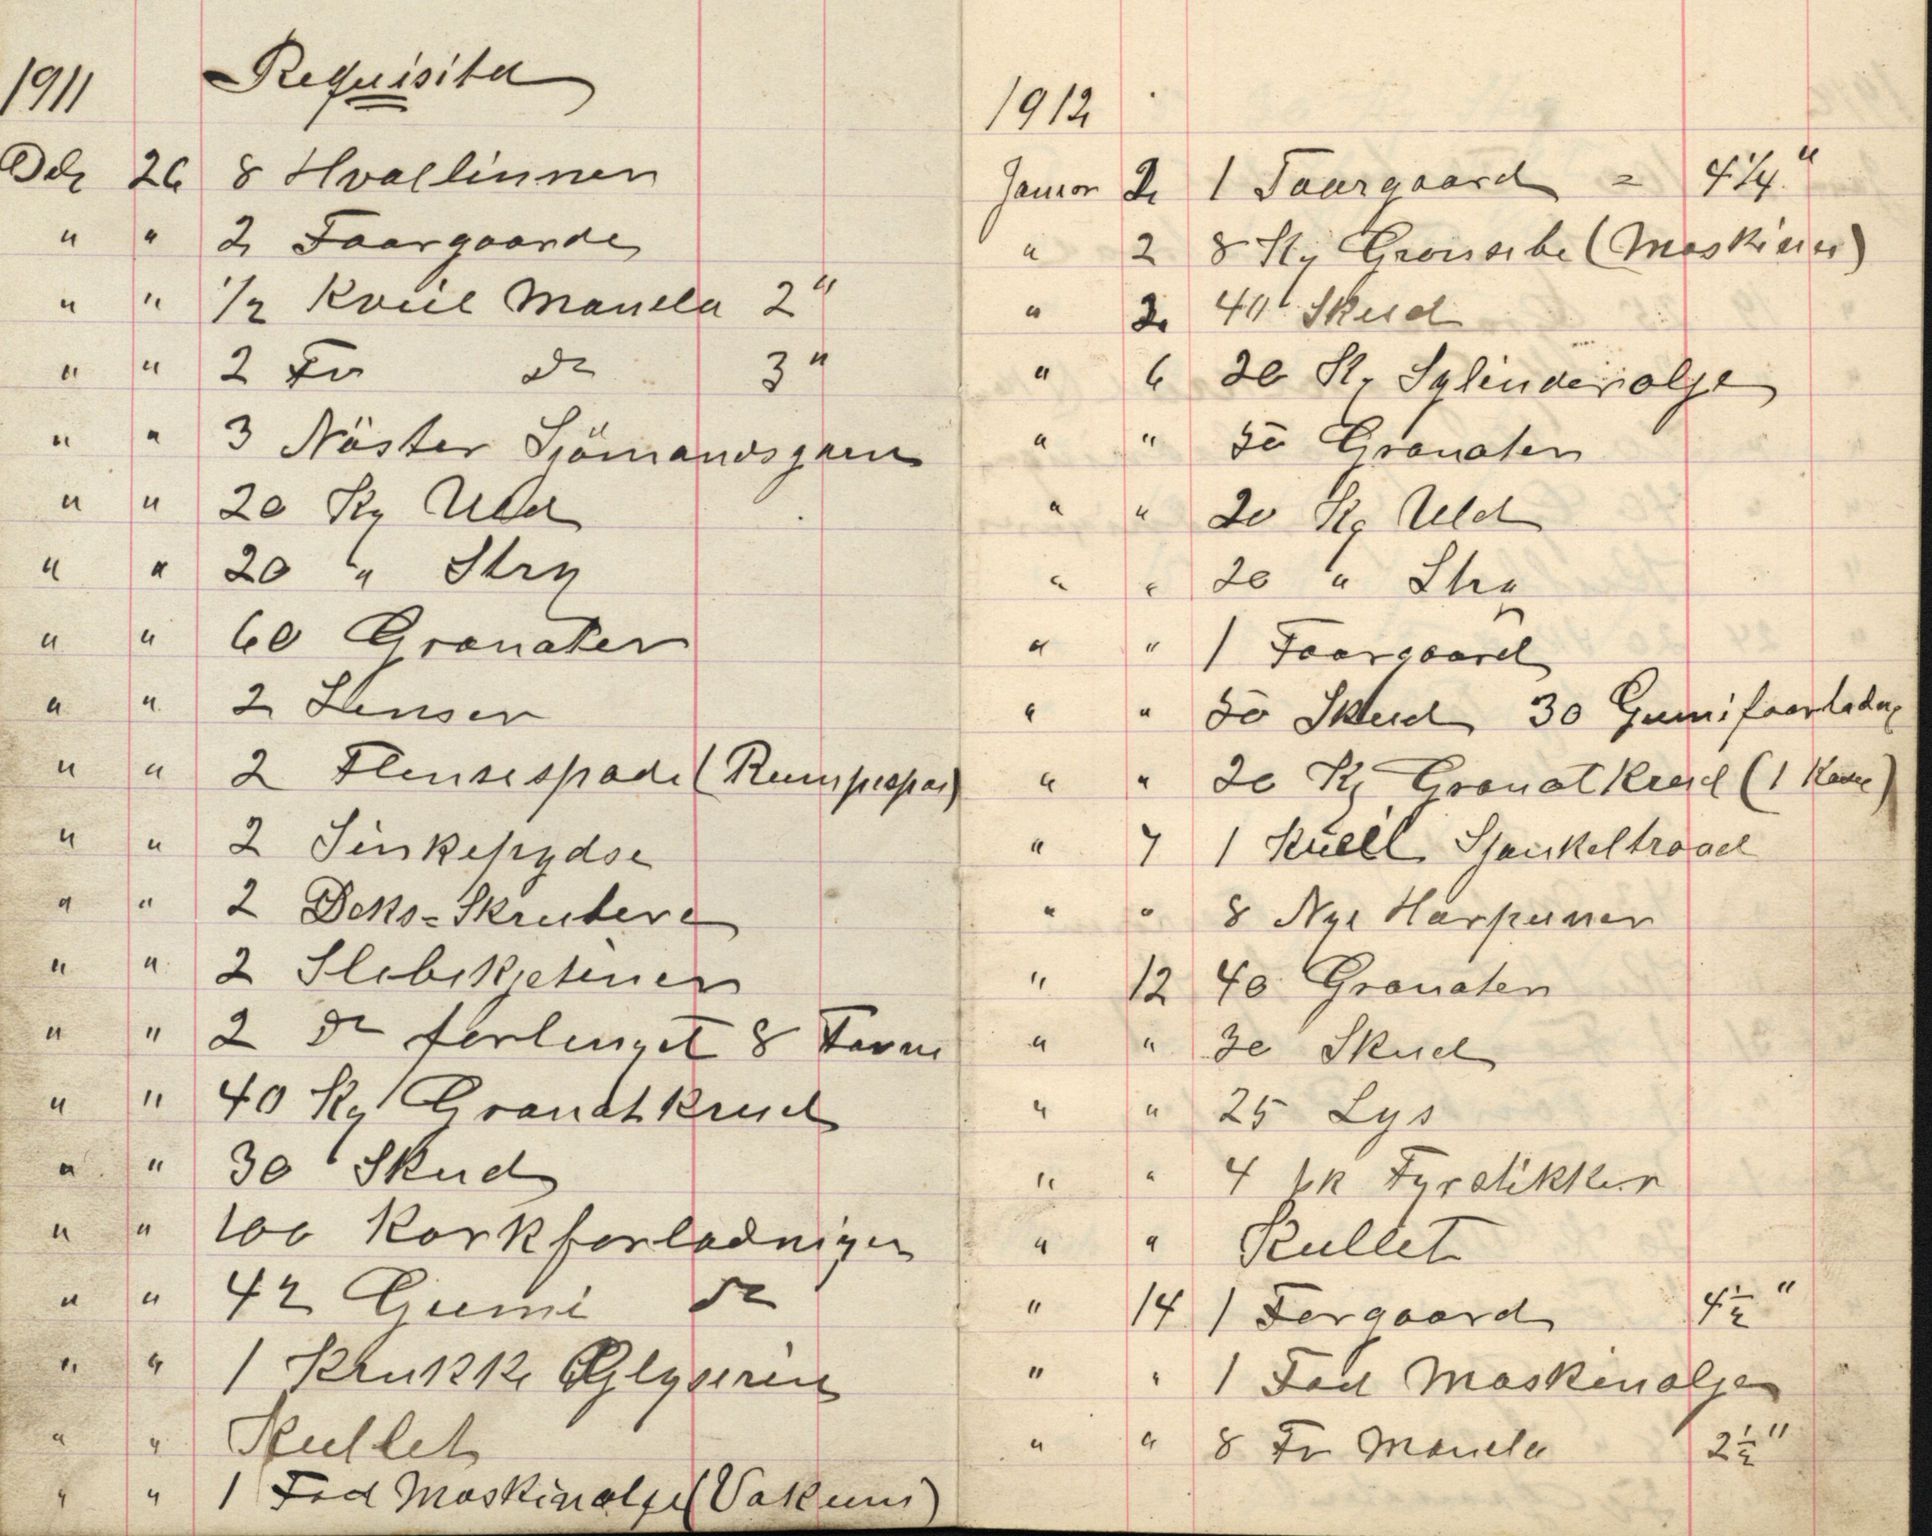 1911 Requisita
Des 26 8 Hvallinner
" " 2 Faargaarde
" " 1/2 Kveil Manela 2"
" " 2 Fv do 3"
" " 3 Nöster Sjömandsgarn
" " 20 Kg Uld
" " 20 " Stry
" " 60 Granater
" " 2 Lenser
" " 2 Flensespade (Rumpespa)
" " 2 Sinkepydse
" " 2 Deks=Skrubere
" " 2 Slebekjetiner
" " 2 do forlenget 8 Favne
" " 40 Kg Granatkrud
" " 30 Skud
" " 100 Korkforladninger
" " 42 Gumi do
" " 1 Krukke Glyserin
" " Kullet
" " 1 Fad Maskinolje (Vakum)
1912
Januar 2 1 Faargaard = 4 1/4"
" 2 8 Kg Gronsebe (Maskinen)
" 2 40 Skud
" 6 20 Kg Sylinderolje
" " 50 Granater
" " 20 Kg Uld
" " 20 " Stry
" " 1 Faargaard
" " 50 Skud 30 Gumifaarladng
" " 20 Kg Granatkrud (1 Kasse)
" 7 1 Kueil Sjankeltraad
" " 8 Nye Harpuner
" 12 40 Granater
" " 30 Skud
" " 25 Lys
" " 4 pk Fyrstikker
" " Kullet
" 14 1 Forgaard 4 1/2"
" " 1 Fad Maskinolje
" " 8 Fv Manela 2 1/2"